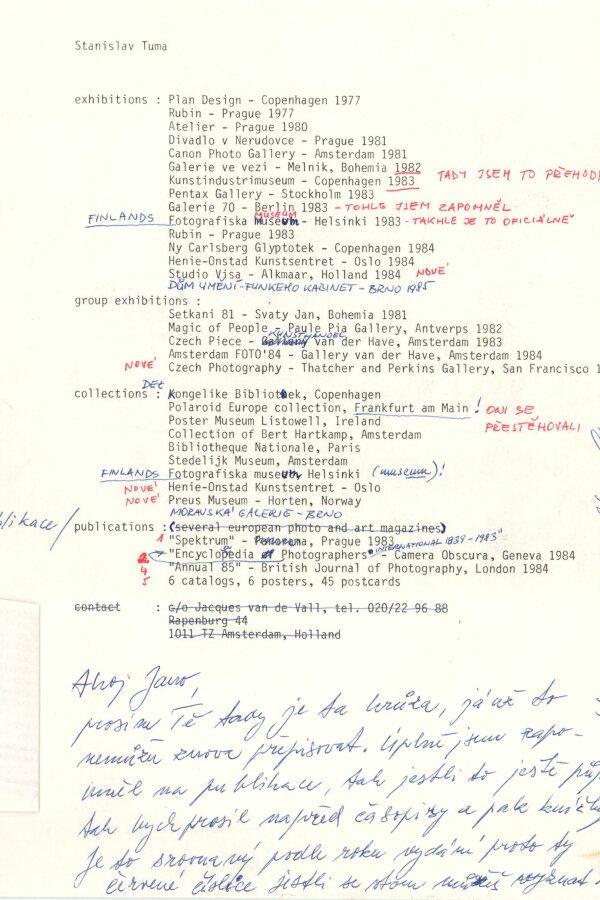 Stanislav Tuma
exhibitions : Plan Design - Copenhagen 1977
Rubin - Prague 1977
Atelier - Prague 1980
Divadlo v Nerudovce - Prague 1981
Canon Photo Gallery - Amsterdam 1981
Galerie ve vezi - Melnik, Bohemia 1982
Kunstindustrimuseum - Copenhagen 1983 TADY JSEM TO PŘEHODI
Pentax Gallery - Stockholm 1983
Galerie 70 - Berlin 1983 - TOHLE JSEM ZAPOMNĚL
MUSEUM
FINLANDS Fotografiska Museum - Helsinki 1983 - TAKHLE JE TO OFICIÁLNĚ
Rubin - Prague 1983
Ny Carlsberg Glyptotek - Copenhagen 1984
Henie-Onstad Kunstsentret - Oslo 1984
Studio Visa - Alkmaar, Holland 1984 NOVÉ
DŮM UMĚNÍ - FUNKEHO KABINET - BRNO 1985
group exhibitions :
Setkani 81 - Svaty Jan, Bohemia 1981
Magic of People - Paule Pia Gallery, Antverps 1982
KUNSTHANDEL
Czech Piece - Gallery van der Have, Amsterdam 1983
Amsterdam FOTO'84 - Gallery van der Have, Amsterdam 1984
NOVÉ Czech Photography - Thatcher and Perkins Gallery, San Francisco 1
DET
collections : Kongelike Bibliotek, Copenhagen
Polaroid Europe collection, Frankfurt am Main ! ONI SE
Poster Museum Listowell, Ireland PŘESTĚHOVALI
Collection of Bert Hartkamp, Amsterdam
Bibliotheque Nationale, Paris
Stedelijk Museum, Amsterdam
FINLANDS Fotografiska museum Helsinki (museum)!
NOVÉ Henie-Onstad Kunstsentret - Oslo
NOVÉ Preus Museum - Horten, Norway
MORAVSKÁ GALERIE - BRNO
blikace/
publications : (several european photo and art magazines)
1 "Spektrum" - Prague 1983
2 "Encyclopedia of Photographers" INTERNATIONAL 1839-1983" - Camera Obscura, Geneva 1984
4 "Annual 85" - British Journal of Photography, London 1984
5 6 catalogs, 6 posters, 45 postcards
contact : c/o Jacques van de Vall, tel. 020/22 96 88
Rapenburg 44
1011 TZ Amsterdam, Holland
Ahoj Jano,
prosím Tě tady je ta hrůza, já už to
nemůžu znova přepisovat. Úplně jsem zapo-
mněl na publikace, tak jestli to ještě
tak bych prosil napřed časopisy a pak knížky
Je to srovnaný podle roku vydání proto ty
červené číslice jestli se v tom vyznat